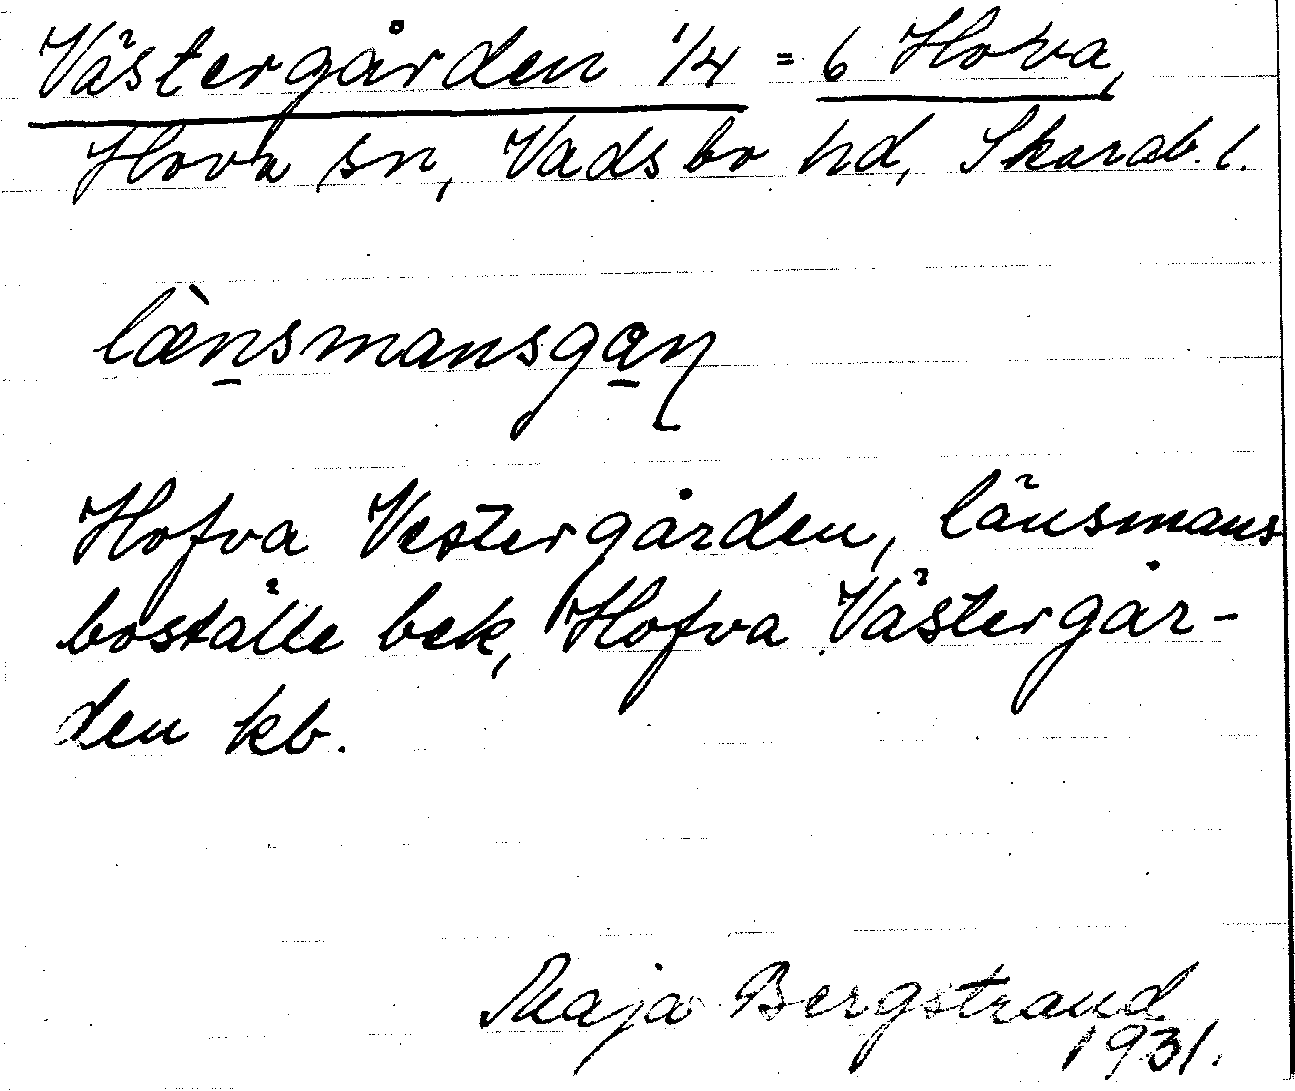 Västergården 1/4 = 6 Hova,
Hova sn, Vadsbo hd, Skarab. l.
læ̀n̠smansga̠ɳ
Hofva Vestergården, länsmans
boställe bek, Hofva Västergår-
den kb.
Maja Bergstrand
1931.